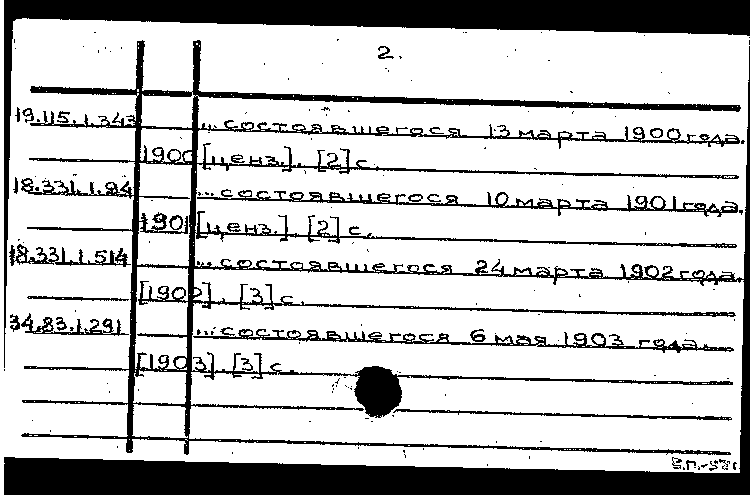 2.
19.115.1.343 ... состоявшегося 13 марта 1900 года.
1900 [ценз.]. [2] с.
18.331.1.84 ... состоявшегося 10 марта 1901 года.
1901 [ценз.]. [2] с.
18.331.1.514 ... состоявшегося 24 марта 1902 года.
[1902]. [3] с.
34.83.1.291 ... состоявшегося 6 мая 1903 года.
[1903]. [3] с.